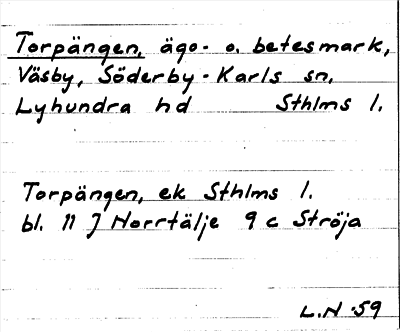 Torpängen, ägo- o. betesmark,
Väsby, Söderby-Karls sn,
Lyhundra hd Sthlms l.
Torpängen, ek Sthlms l.
bl. 11 J Norrtälje 9 c Ströja
L.N -59